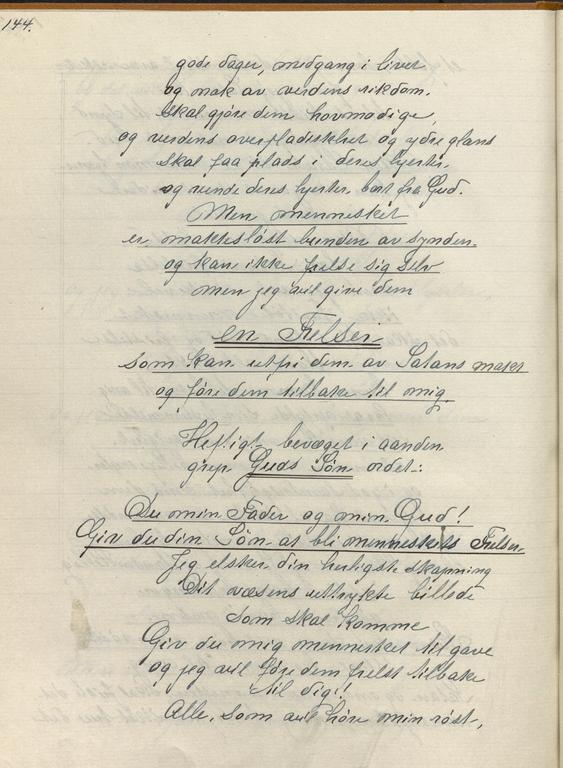 144.
gode dager, medgang i livet
og mak av verdens rikdom.
Skal gjøre dem hovmodige,
og verdens overfladiskhet og ydre glans
skal faa plads i deres hjerter.
og vende deres hjerter bort fra Gud.
Men mennesket
er maktesløst bunden av synden.
og kan ikke frelse sig selv
men jeg vil give dem
en Frelser
som kan utfri dem av Satans makt
og føre dem tilbake til mig.
Heftigt bevæget i aanden
grep Guds Søn ordet:
Du min Fader og min Gud!
Giv du din Søn at bli menneskets Frelser
Jeg elsker din herligste skapning
Dit væsens uttrykte billede
som skal komme
Giv du mig mennesket til gave
og jeg vil føre dem frelst tilbake
til dig!
Alle, som vil høre min røst,